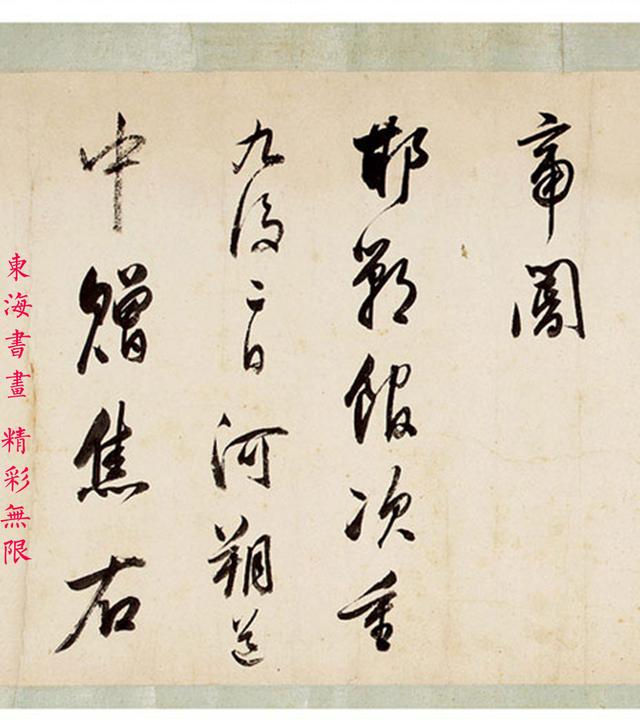 帝
邯鄲館次重
九後二日河朔道
中贈焦右
東海書畫 精彩無限